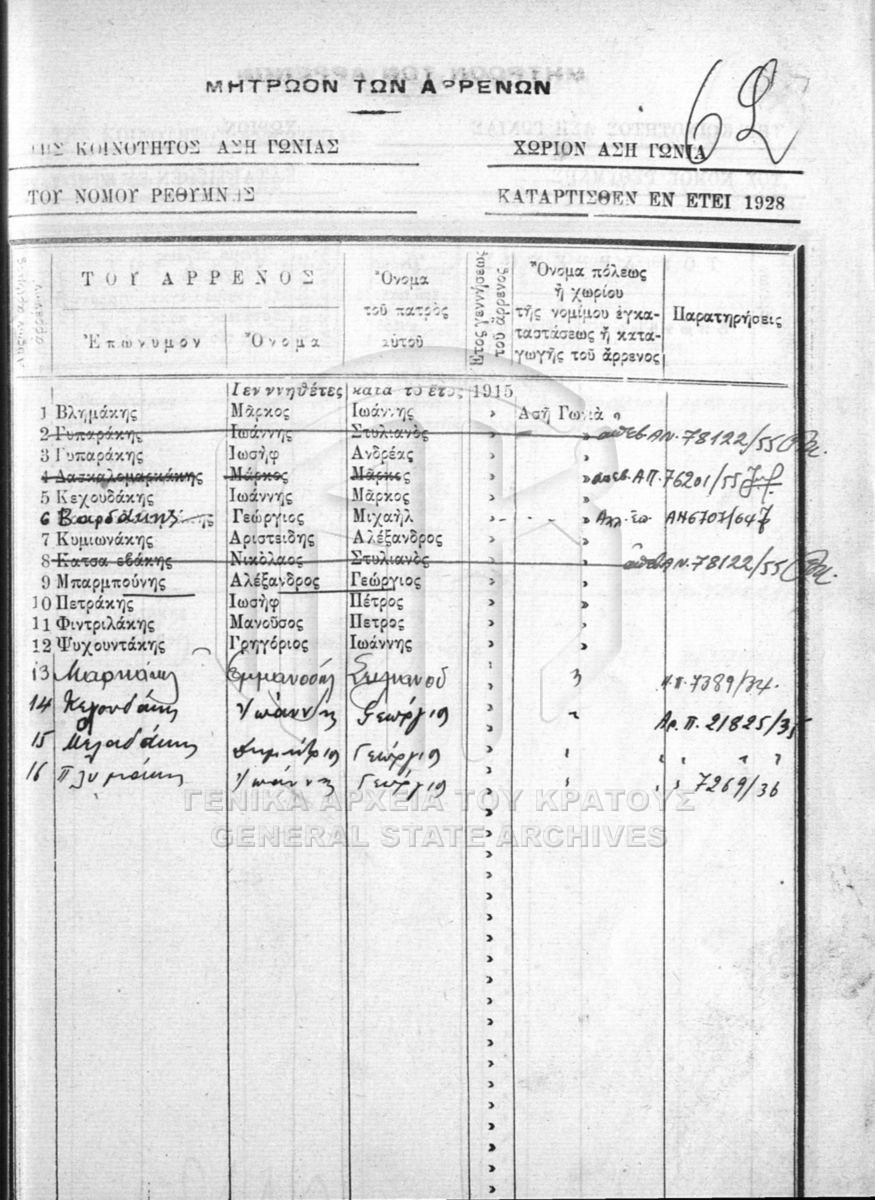 ΜΗΤΡΩΟΝ ΤΩΝ ΑΡΡΕΝΩΝ
62
ΤΗΣ ΚΟΙΝΟΤΗΤΟΣ ΑΣΗ ΓΩΝΙΑΣ ΧΩΡΙΟΝ ΑΣΗ ΓΩΝΙΑ
ΤΟΥ ΝΟΜΟΥ ΡΕΘΥΜΝΗΣ ΚΑΤΑΡΤΙΣΘΕΝ ΕΝ ΕΤΕΙ 1928
ΤΟΥ ΑΡΡΕΝΟΣ
Ἐπώνυμον
Ὄνομα
Ὄνομα
τοῦ πατρὸς
αὐτοῦ
Ἔτος γεννήσεως
τοῦ ἄρρενος
Ὄνομα πόλεως
ἢ χωρίου
τῆς νομίμου ἐγκα-
ταστάσεως ἢ κατα-
γωγῆς τοῦ ἄρρενος
Παρατηρήσεις
Γεννηθέτες κατα το ἔτος 1915
1 Βλημάκης Μᾶρκος Ἰωάννης » Ἀσῆ Γωνιὰ
2 Γυπαράκης Ἰωάννης Στυλιανὸς » » απεβ ΑΝ. 78122/55
3 Γυπαράκης Ἰωσὴφ Ἀνδρέας » »
4 Δασκαλομαρκάκης Μάρκος Μᾶρκος » » απεβ. ΑΠ. 76201/55
5 Κεχουδάκης Ἰωάννής Μᾶρκος » »
6 Βαρδάκης Γεώργιος Μιχαὴλ » » ΑΝ6707/64
7 Κυμιωνάκης Ἀριστείδης Ἀλέξανδρος » »
8 Κατσαεβάκης Νικόλαος Στυλιανὸς » » απεβ ΑΝ. 78122/55
9 Μπαρμπούνης Ἀλέξανδρος Γεώργιος » »
10 Πετράκης Ἰωσὴφ Πέτρος » »
11 Φιντριλάκης Μανοῦσος Πετρος » »
12 Ψυχουντάκης Γρηγόριος Ἰωάννης » »
13 Μαρκάκης Εμμανουήλ Στυλιανού » 7389/34
14 Κεχουδάκης Ιωάννης Γεώργιο » Αρ. Π. 21825/35
15 Μελαδάκης Δημήτριο Γεώργιο » " " "
16 Ιωάννης Γεώργιο » " " 7269/36
ΓΕΝΙΚΑ ΑΡΧΕΙΑ ΤΟΥ ΚΡΑΤΟΥΣ
GENERAL STATE ARCHIVES